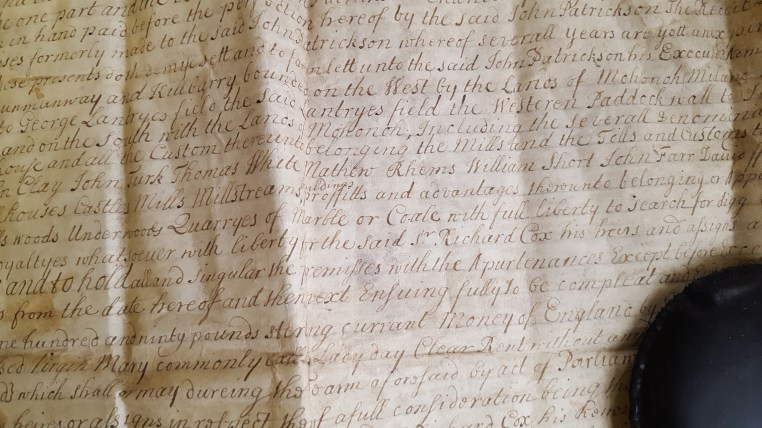 one part and
in hand paid before the hereof by the said John Patrickson The Receit
ses formerly made to the said John Patrickson whereof severall years are yett
these presents doth sett and to farm lett unto the said John Patrickson his
unmanway and Kilbarry bounded on the West by the Lands of
to George Lantryes field the said Lantryes field the Western Paddock wall
and on the South with the Lands of Including the severall
house and all the Custom thereunto belonging the Mills and the Tolls and Customs
Clay John Turk Thomas White Mathew Rhems William Short John Farr David
houses Castles Mills Millstreams buildings proffitts and advantages thereunto belonging or
Woods Underwoods Quarryes of Marble or Coale with full liberty to search for digg
oyaltyes whatsoever with liberty for the said Sr. Richard Cox his heirs and assigns
and to hold all and Singular the premisses with the Apurtenances Except before
from the date hereof and then next Ensuing fully to be compleat and
one hundred and ninty pounds sterling current Money of England
sed Virgin Mary commonly Lady day Clear Rent without
which shall or may dureing the farm aforesaid by act of Parliam
heires or assigns in respect the a full consideration being
Richard Cox his